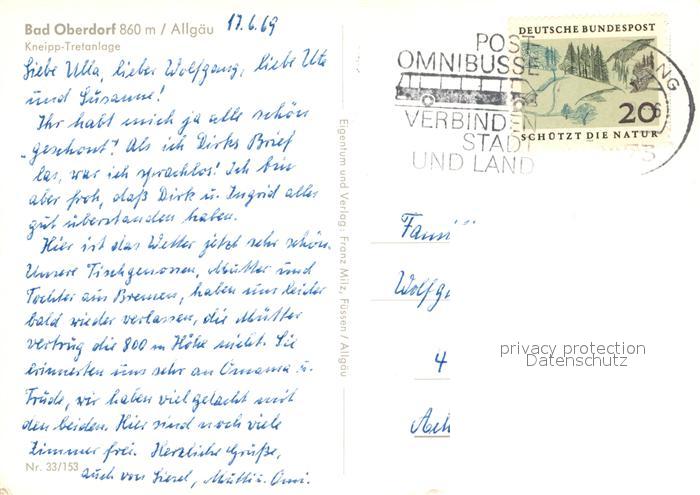 Bad Oberdorf 860 m / Allgäu 17.6.69
Kneipp-Tretanlage
Liebe Ulla, lieber Wolfgang, liebe Uta
und Susanne!
Ihr habt mich ja alle schön
"geschont"! Als ich Dirks Brief
las, war ich sprachlos! Ich bin
aber froh, daß Dirk u. Ingrid alles
gut überstanden haben.
Hier ist das Wetter jetzt sehr schön.
Unsere Tischgenossen, Mutter und
Tochter aus Bremen, haben uns leider
bald wieder verlassen, die Mutter
vertrug die 800 m Höhe nicht. Sie
erinnerten uns sehr an Omama u.
Trude, wir haben viel gelacht mit
den beiden. Hier sind noch viele
Zimmer frei. Herzliche Grüße,
auch von Liesel, Mutti u. Omi.
Nr. 33/153
Eigentum und Verlag: Franz Milz, Füssen / Allgäu
POST
OMNIBUSSE
VERBINDEN
STADT
UND LAND
DEUTSCHE BUNDESPOST
20
SCHÜTZT DIE NATUR
Fami
Wolfg
4
Ach
privacy protection
Datenschutz